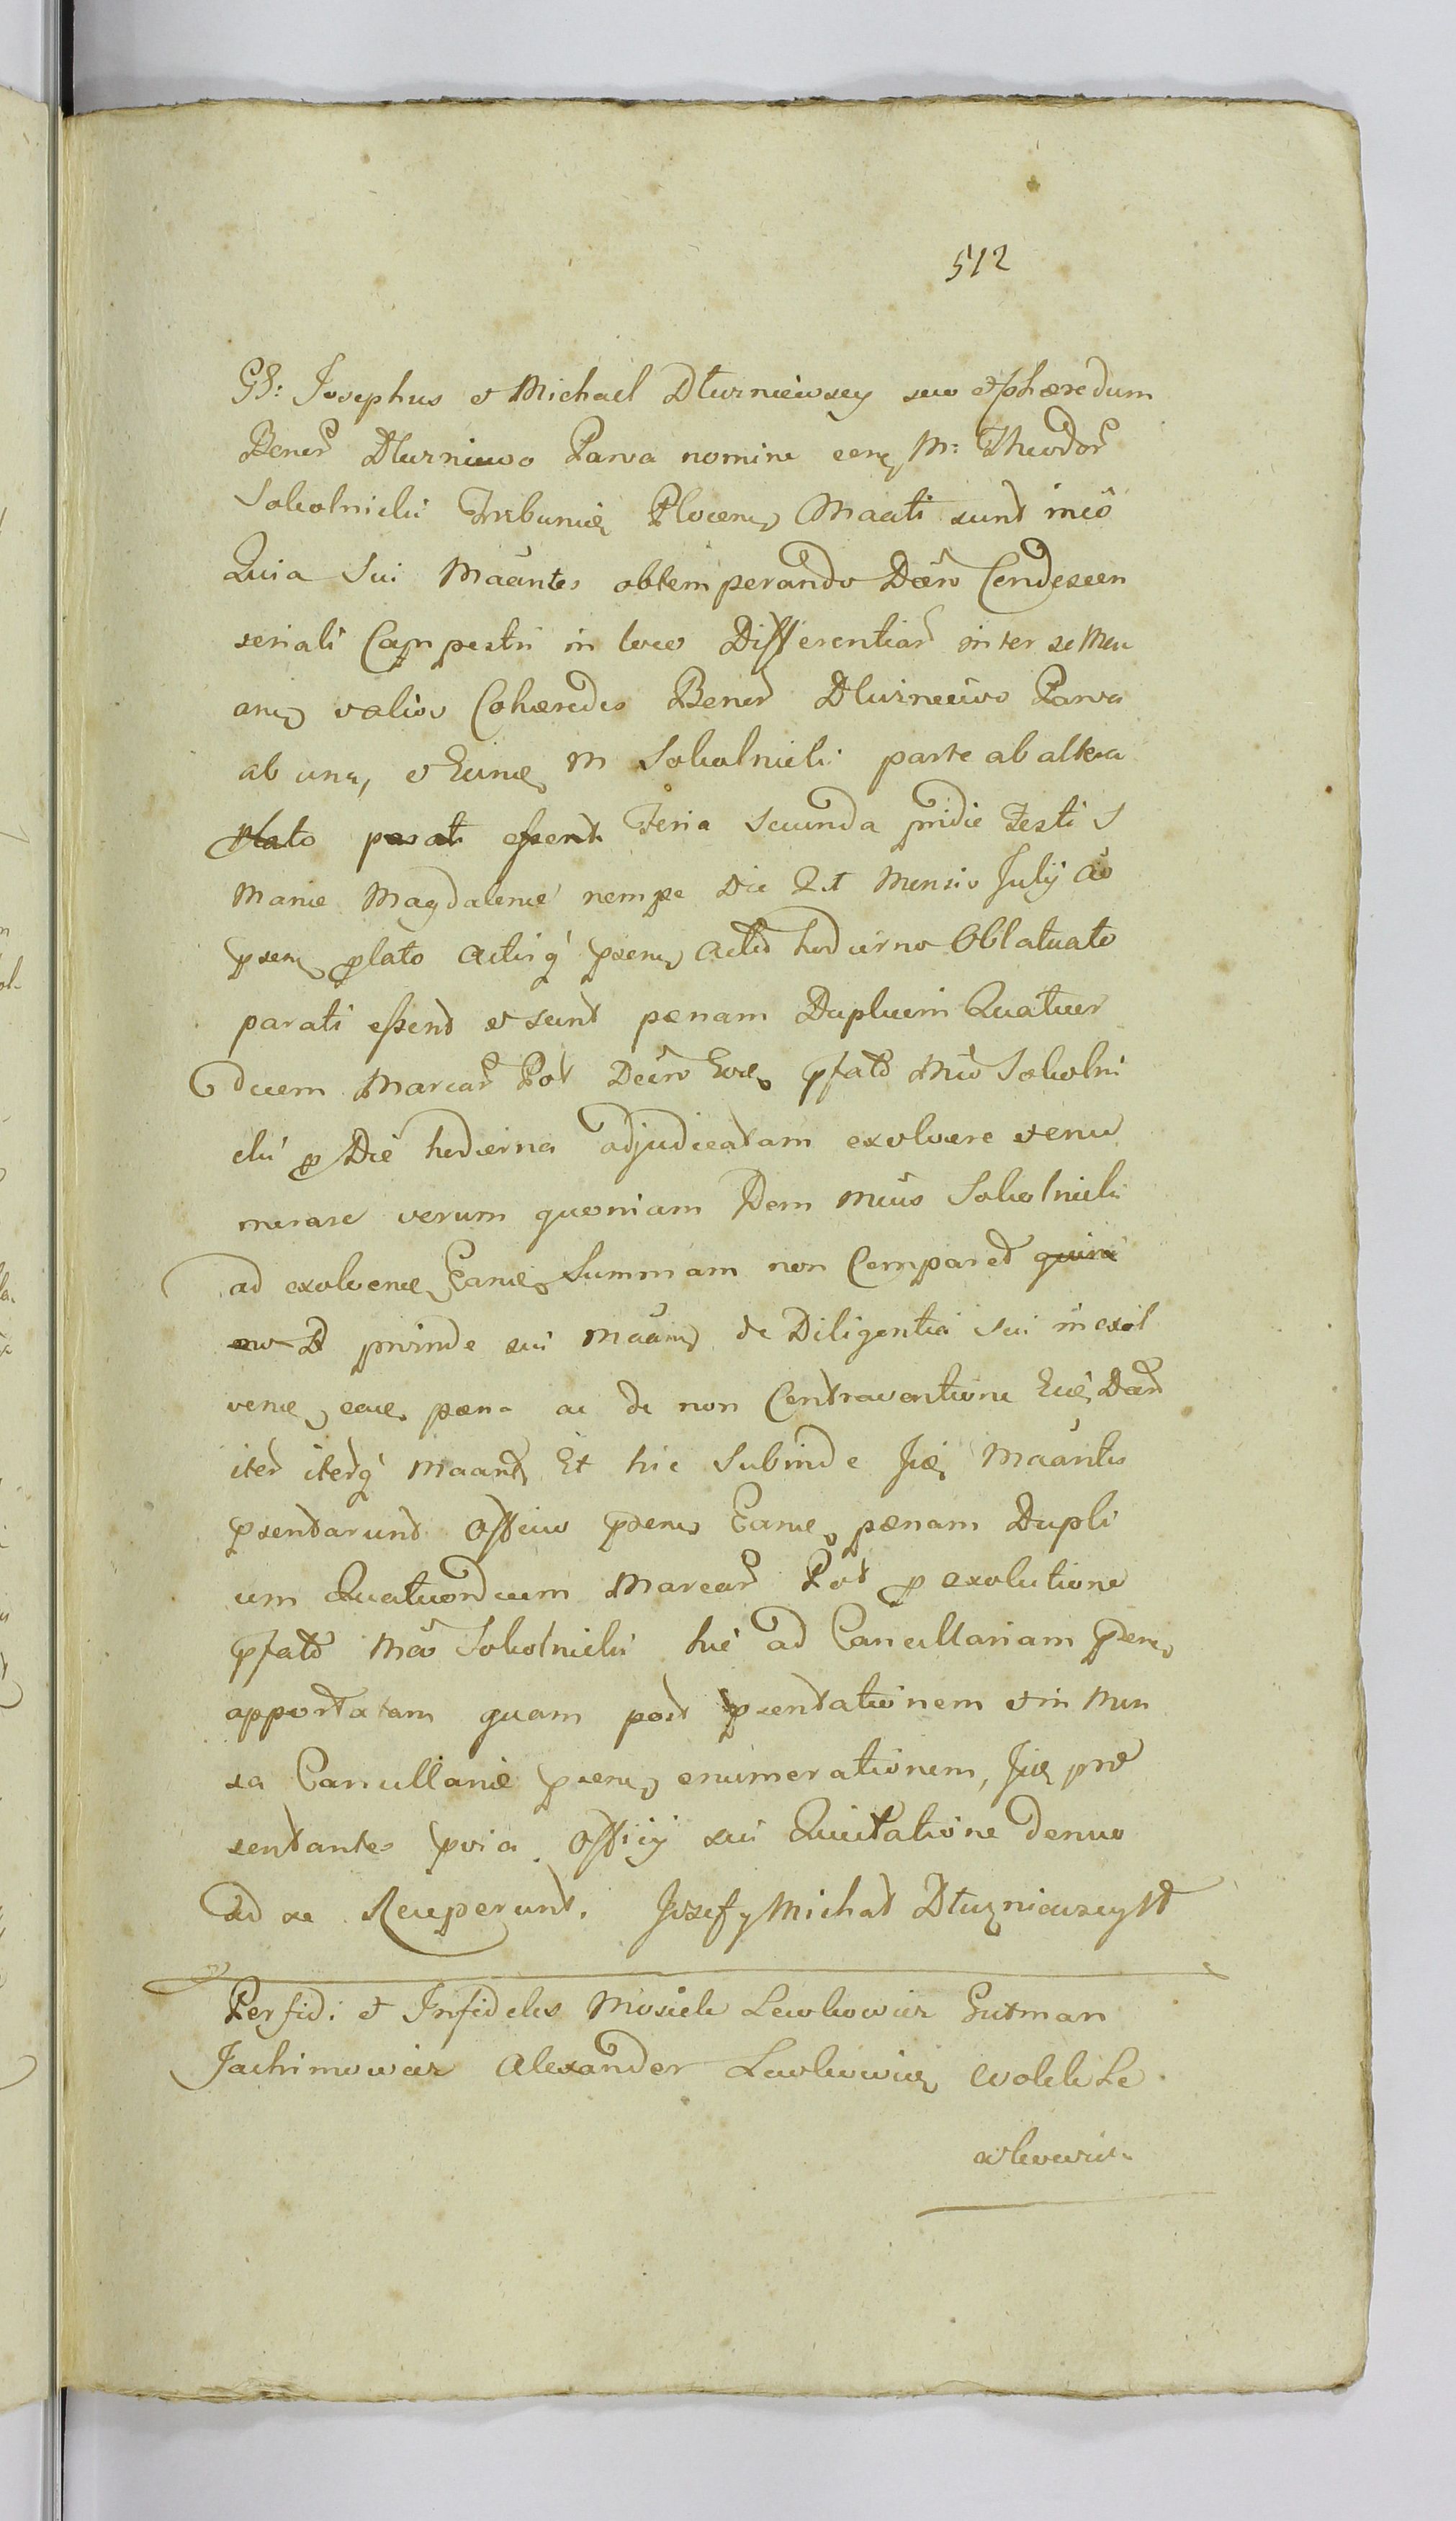 512
GS: Josephus et Michael Dłuzniewscy suo et Cohæredum
Bonor Dłuzniewo Parva nomine M: Theodor
Sokolnicki Tribunie Plocens Maati sunt
Quia Sui Maantes obtemperando Decro Condescen
seriali Campestri in loco Differentiar inter se Ma
anes et alios Cohæredes Bonor Dłuzniewo Parva
ab una, et M Sokolnicki parte ab altera
plato parati essent Feria Secunda pridie Festi S
Mariæ Magdalenæ nempe Die 21 Mensis Julij Ao
psens plato Actisq psens Acted hodierno Oblatuato
parati essent et sunt pænam Duplicem Quatuor
decem Marcar Pol Decro pfato Mco Sokolni
cki p Die hodierna adjudicatam exolvere et enu
merare verum quoniam Idem Mcus Sokolnicki
ad exolvene Eane Summam non Comparet
proinde sui Maans de Diligentia sui in exol
vene pæna ac de non Contraventione Decr
iter iterq Maant Et hic Subinde Iide Maantes
psentarunt Officio psens Eane pænam Dupli
cem Quatuordecem Marcar Pol p exolutione
pfato Mco Sokolnicki hic ad Cancellariam psens
apportatam quam post psentationem et in Men
sa Cancellariæ psens enumerationem, Iide præ
sentantes pvia Officij sui Quietatione denuo
ad se Receperunt. Jozef y Michał Dłuzniewscy
Perfid: et Infideles Mosiek Lewkowicz Gutman
Jachimowicz Alexander Lewkowicz Wolek Le
wkowicz